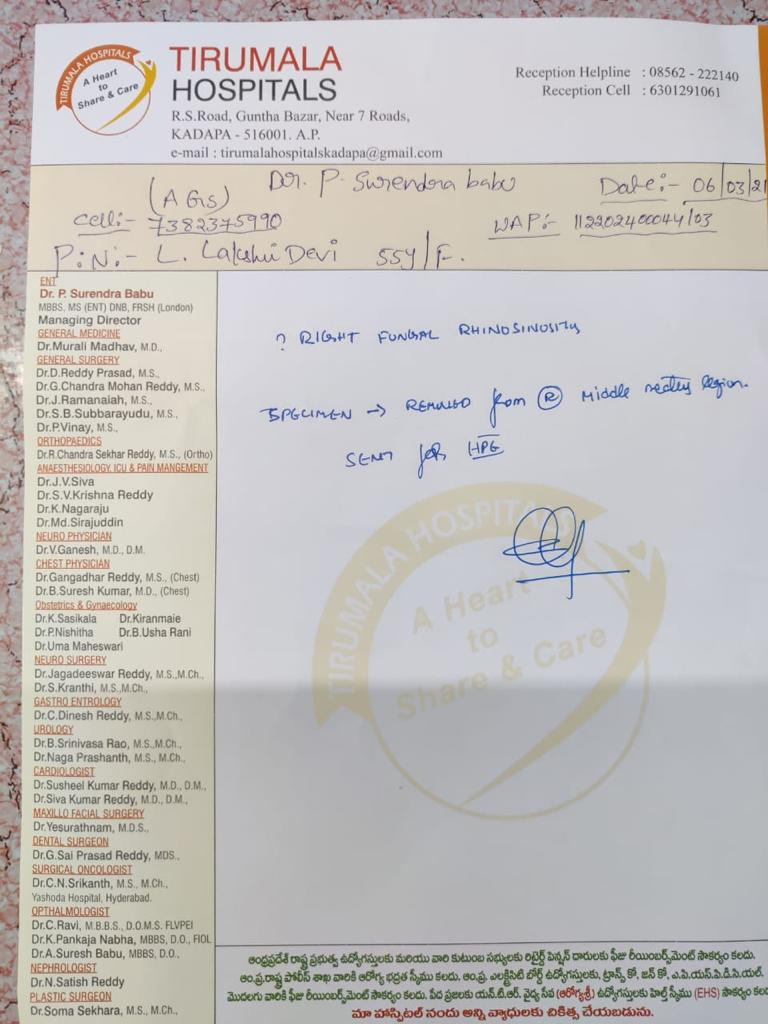 TIRUMALA HOSPITALS
A Heart
to
Share & Care
TIRUMALA
HOSPITALS
R.S.Road, Guntha Bazar, Near 7 Roads,
KADAPA - 516001. A.P.
e-mail : tirumalahospitalskadapa@gmail.com
Reception Helpline : 08562 - 222140
Reception Cell : 6301291061
(AGS) Dr. P. Surendra babu Date:- 06/03/21
Cell:- 7382375990 WAP:- 112202400044/03
P:N:- L. Lakshmi Devi 55Y/F.
ENT
Dr. P. Surendra Babu
MBBS, MS (ENT) DNB, FRSH (London)
Managing Director
GENERAL MEDICINE
Dr.Murali Madhav, M.D.,
GENERAL SURGERY
Dr.D.Reddy Prasad, M.S.,
Dr.G.Chandra Mohan Reddy, M.S.,
Dr.J.Ramanaiah, M.S.,
Dr.S.B.Subbarayudu, M.S.,
Dr.P.Vinay, M.S.,
ORTHOPAEDICS
Dr.R.Chandra Sekhar Reddy, M.S., (Ortho)
ANAESTHESIOLOGY, ICU & PAIN MANGEMENT
Dr.J.V.Siva
Dr.S.V.Krishna Reddy
Dr.K.Nagaraju
Dr.Md.Sirajuddin
NEURO PHYSICIAN
Dr.V.Ganesh, M.D., D.M.
CHEST PHYSICIAN
Dr.Gangadhar Reddy, M.S., (Chest)
Dr.B.Suresh Kumar, M.D., (Chest)
Obstetrics & Gynaecology
Dr.K.Sasikala Dr.Kiranmaie
Dr.P.Nishitha Dr.B.Usha Rani
Dr.Uma Maheswari
NEURO SURGERY
Dr.Jagadeeswar Reddy, M.S.,M.Ch.,
Dr.S.Kranthi, M.S.,M.Ch.,
GASTRO ENTROLOGY
Dr.C.Dinesh Reddy, M.S.,M.Ch.,
UROLOGY
Dr.B.Srinivasa Rao, M.S.,M.Ch.,
Dr.Naga Prashanth, M.S., M.Ch.,
CARDIOLOGIST
Dr.Susheel Kumar Reddy, M.D., D.M.,
Dr.Siva Kumar Reddy, M.D., D.M.,
MAXILLO FACIAL SURGERY
Dr.Yesurathnam, M.D.S.,
DENTAL SURGEON
Dr.G.Sai Prasad Reddy, MDS.,
SURGICAL ONCOLOGIST
Dr.C.N.Srikanth, M.S., M.Ch.,
Yashoda Hospital, Hyderabad.
OPTHALMOLOGIST
Dr.C.Ravi, M.B.B.S., D.O.M.S. FLVPEI
Dr.K.Pankaja Nabha, MBBS, D.O., FIOL
Dr.A.Suresh Babu, MBBS, D.O.,
NEPHROLOGIST
Dr.N.Satish Reddy
PLASTIC SURGEON
Dr.Soma Sekhara, M.S., M.Ch.,
? RIGHT FUNGAL RHINOSINUSITIS
SPECIMEN → REMOVED from Ⓡ Middle region.
SENT for HPE
TIRUMALA HOSPITALS
A Heart
to
Share & Care
ఆంధ్రప్రదేశ్ రాష్ట్ర ప్రభుత్వ ఉద్యోగస్తులకు మరియు వారి కుటుంబ సభ్యులకు రిటైర్డ్ పెన్షన్ దారులకు ఫీజు రీయింబర్స్‌మెంట్ సౌకర్యం కలదు.
ఆం.ప్ర.రాష్ట్ర పోలీస్ శాఖ వారికి ఆరోగ్య భద్రత స్కీము కలదు. ఆం.ప్ర. ఎలక్ట్రిసిటి బోర్డ్ ఉద్యోగస్తులకు, ట్రాన్స్ కో, జన్ కో, ఎ.పి.యస్.పి.డి.సి.యల్.
మొదలగు వారికి ఫీజు రీయింబర్స్‌మెంట్ సౌకర్యం కలదు. పేద ప్రజలకు యన్.టి.ఆర్. వైద్య సేవ (ఆరోగ్యశ్రీ) ఉద్యోగస్తులకు హెల్త్ స్కీము (EHS) సౌకర్యం
మా హాస్పిటల్ నందు అన్ని వ్యాధులకు చికిత్స చేయబడును.